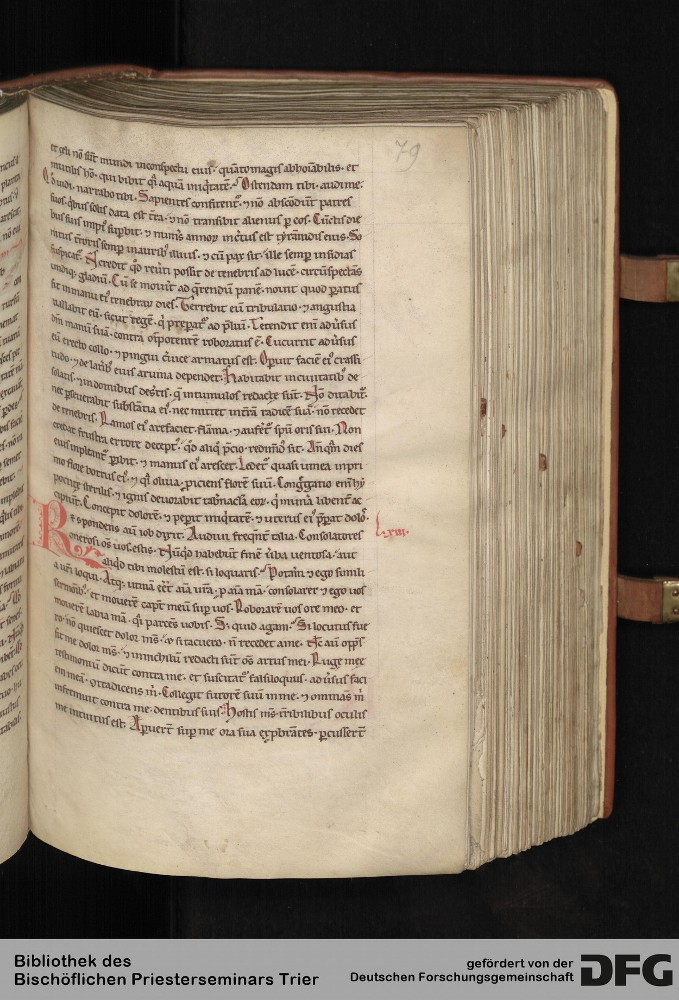 79
et celi nō sūt mundi ī conspectu eius. quāto magis abhoīabilis. et
inutilis hō. qui bibit qͣ aquā iniqͥtatē. Ostendam tibi. audi me.
qd́ uidi. narrabo tibi. Sapientes confitent᷑. ⁊ nō abscondūt patres
suos. qͥbus solis data est tr̄a. ⁊ nō transibit alienus ꝑ eos. Cūctis die
bus suis impiꝰ suꝑbit. ⁊ numꝰs annoꝝ incertus est tyrannidis eius. So
nitus t̄roris semꝑ in auribꝫ illius. ⁊ cū pax sit. ille semꝑ insidias
suspicat᷑. Nō credit qd́ reūti possit de tenebris ad lucē. circūspectās
undiqꝫ gladiū. Cū se mouit᷑ ad qͣrendū panē. nouit quod paratus
sit in manu eiꝰ tenebraꝝ dies. Terrebit eū tribulatio. ⁊ angustia
uallabit eū. sicut regē. qͥ prepaͣt᷑ ad ꝓliū. Tetendit enī aduͥsus
dm̄ manū suā. contra om̄ipotentē roboratus ē. Cucurrit aduͥsus
eū erecto collo. ⁊ pingui cͥuice armatus est. Oꝑuit faciē eiꝰ crassi
tudo. ⁊ de lateribꝫ eius aruina dependet. Habitabit in ciuitatibꝫ de
solatis. ⁊ in domibus des̄tis. qͥ in tumulos redacte sūt. Nō ditabit᷑.
nec ꝑseuerabit substātia eiꝰ. nec mittet in tr̄ā radicē suā. nō recedet
de tenebris. Ramos eiꝰ arefaciet flāma. ⁊ aufret᷑ spū oris sui. Non
credat frustra errore deceptꝰ. qd́ aliqͦ p̄cio redimēdꝰ sit. Anteqͣm dies
eius impleant᷑ ꝑibit. ⁊ manus eiꝰ arescet. Ledet᷑ quasi uinea in pri
mo flore botrus eiꝰ. ⁊ qͣi oliua ꝓiciens florē suū. Congregatio enī hy
pocrite sterilis. ⁊ ignis deuorabit tabernacla eoꝝ. qͥ munera libent᷑ ac
cipiūt. Concepit dolorē. ⁊ peꝑit iniqͥtatē. ⁊ uterus eiꝰ p̄parat dolos.
Respondens aū iob dixit. Audiui freqͣnt᷑ talia. Consolatores
L.xiii.
onerosi om̄s uos estis. Nūqͥd habebūt finē uͥba uentosa. aut
aliqͥd tibi molestū est. si loquaris. Poteram ⁊ ego simili
a uri̅ loqui. Atqꝫ utinā eēt aīa urā. ꝓ aīa mā. consolarer ⁊ ego uos
sermōibꝫ. et mouerē capͥt meū suꝑ uos. Roborarē uos ore meo. et
mouerē labia mā. qͣi parcēs uobis. Sꝫ quid agam. Si locutus fue
ro. nō quiescet dolor ms̄. ⁊ si tacuero. n̄ recedet a me. Nc̄ aū opp̄s
sit me dolor ms̄. ⁊ in nichilū redacti sūt om̄s artus mei. Ruge mee
testimoniū dicūt contra me. et suscitat᷑ falsiloquus. aduͥsus faci
em meā. ꝯtradicens m̄. Collegit furorē suū in me. ⁊ cominās m̄
infremuit contra me dentibus suis. Hostis ms̄ tr̄ibilibus oculis
me intuitus est. Aperuer̄t suꝑ me ora sua exprobrātes. ꝑcusser̄t
Bibliothek des
Bischöflichen Priesterseminars Trier
gefördert von der
Deutschen Forschungsgemeinschaft
DFG